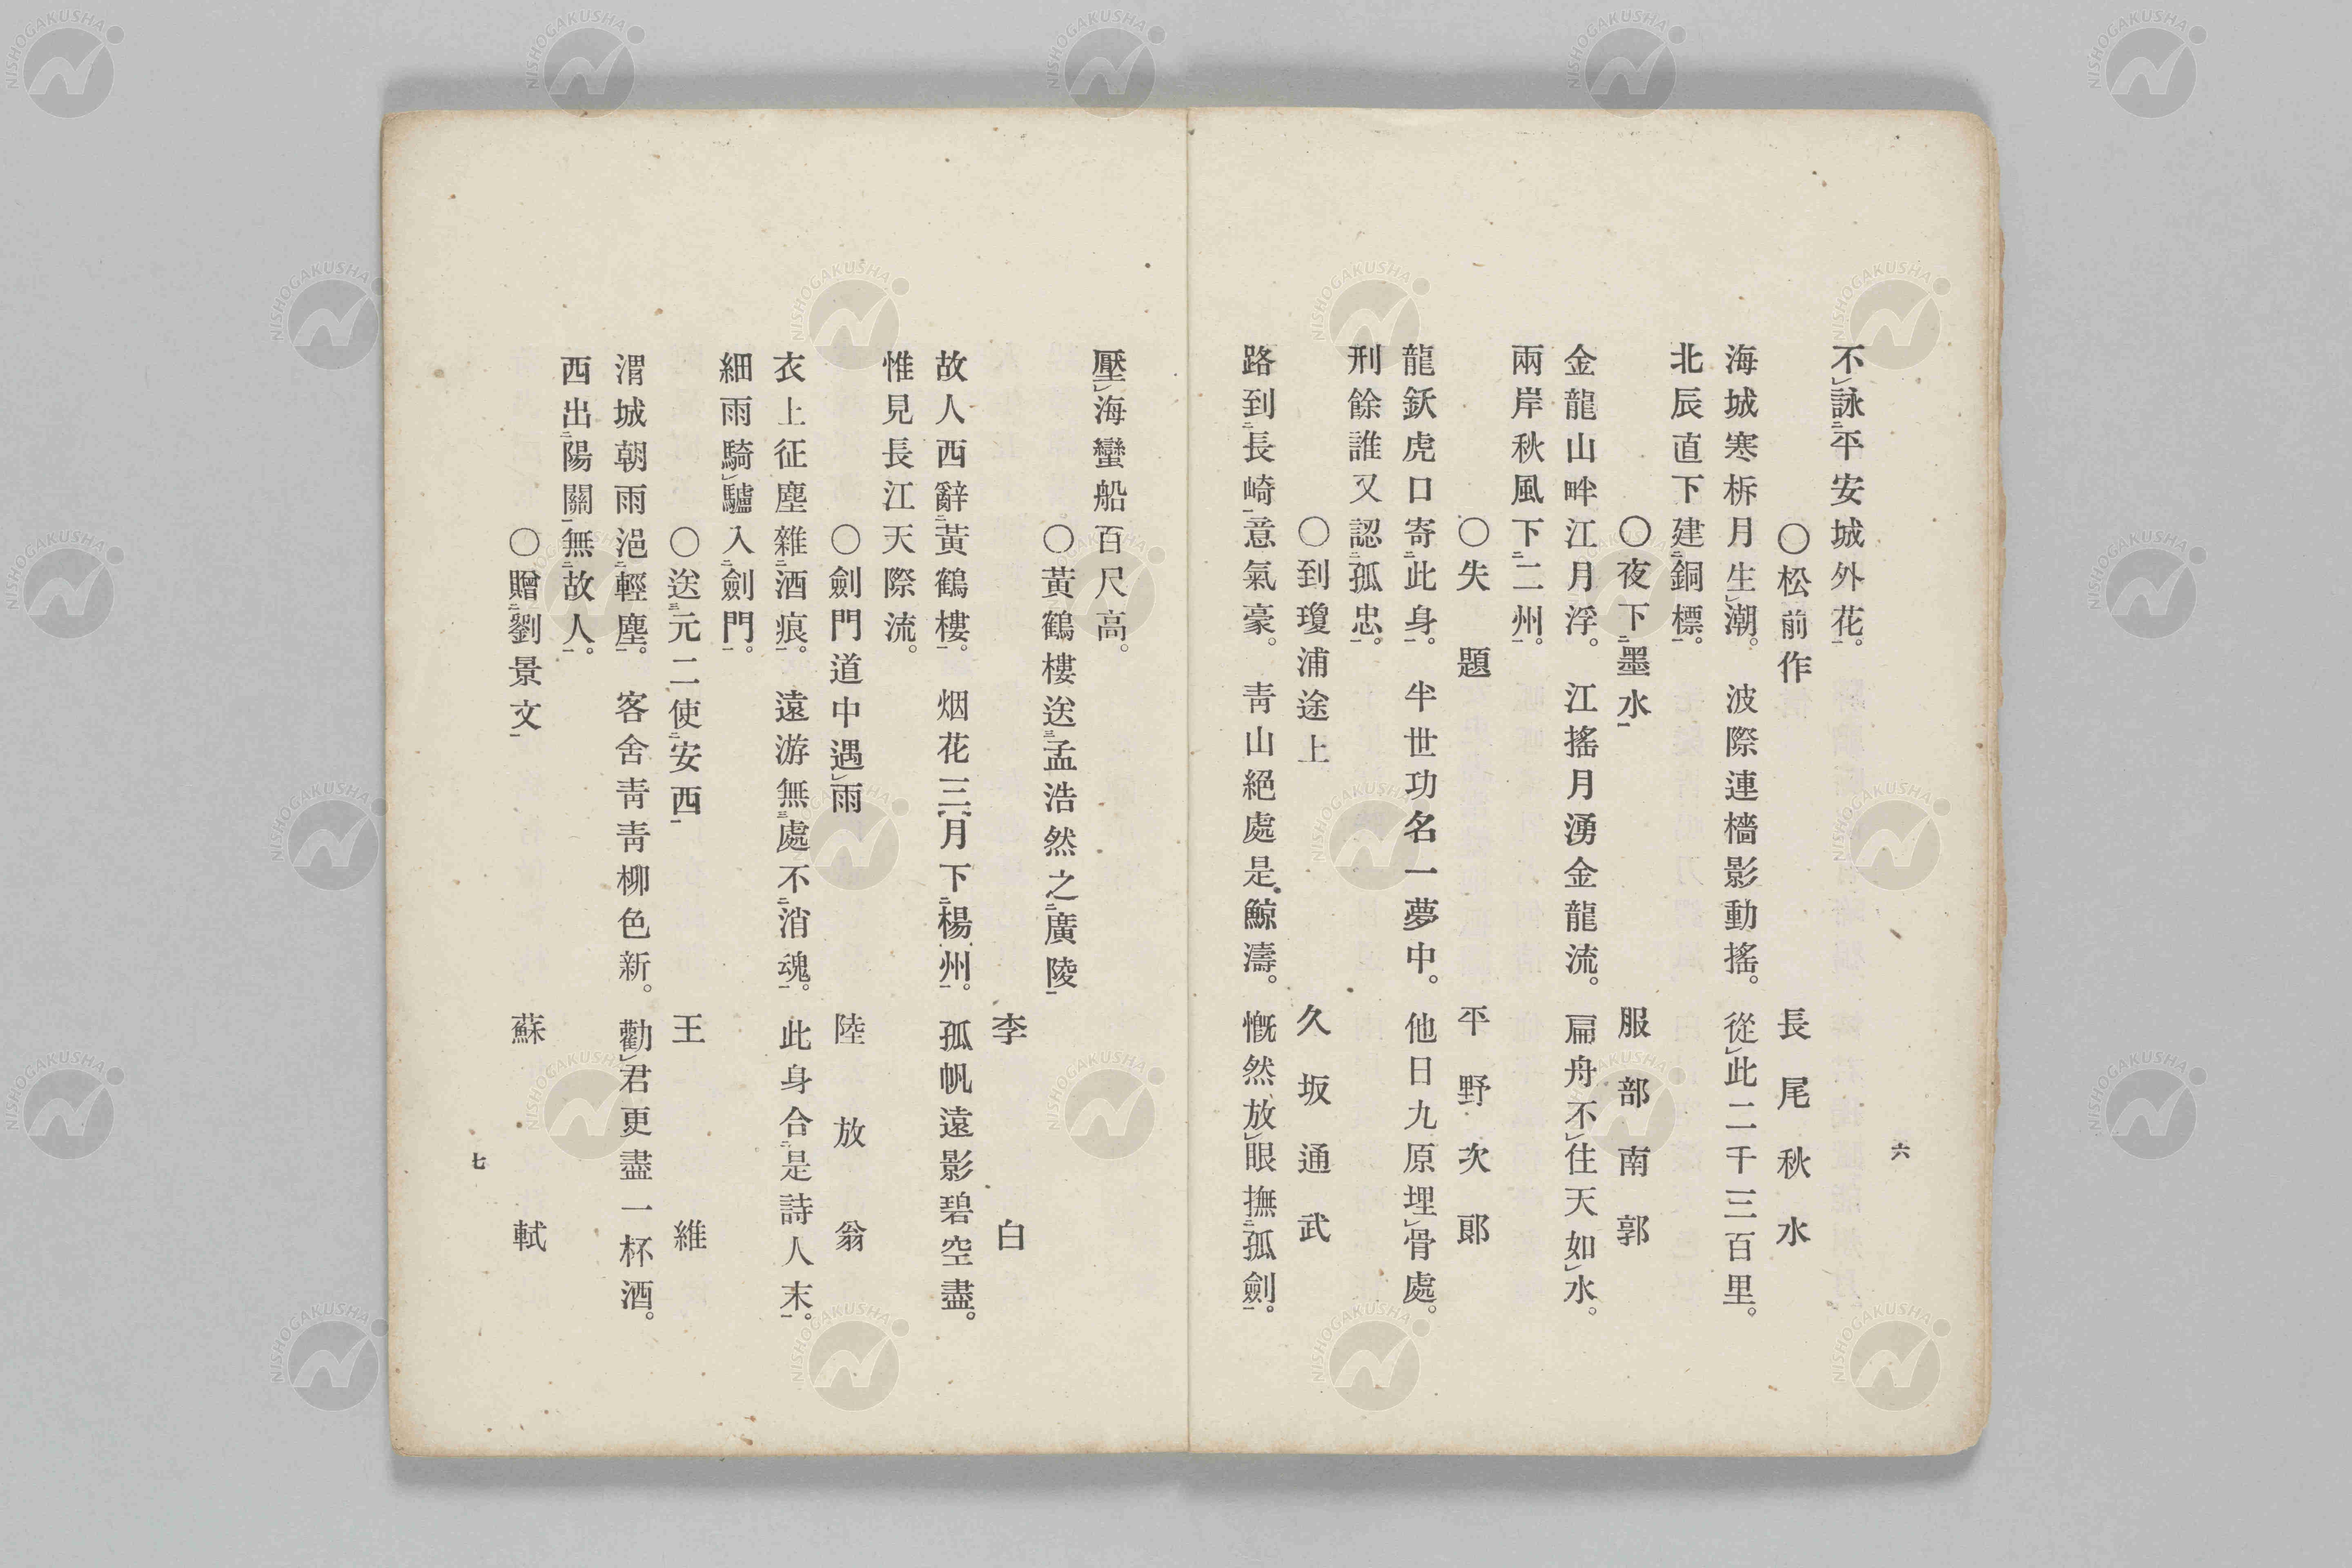 六
不㆑詠㆓平安城外花㆒。
〇松前作　長尾秋水
海城寒柝月生㆑潮。　波際連檣影動搖。　從㆑此二千三百里。
北辰直下建㆓銅標㆒。
〇夜下㆓墨水㆒　服部南郭
金龍山畔江月浮。　江搖月湧金龍流。　扁舟不㆑住天如㆑水。
兩岸秋風下㆓二州㆒。
〇失題　平野次郞
龍鈇虎口寄㆓此身㆒。　半世功名一夢中。　他日九原埋㆑骨處。
刑餘誰又認㆓孤忠㆒。
〇到瓊浦途上　久坂通武
路到㆓長崎㆒意氣豪。　靑山絕處是鯨濤。　慨然放㆑眼撫㆓孤劍㆒。
壓㆑海蠻船百尺高。
〇黃鶴樓送㆔孟浩然之㆓廣陵㆒
李白
故人西辭㆓黃鶴樓㆒。　烟花三月下㆓楊州㆒。　孤帆遠影碧空盡。
惟見長江天際流。
〇劍門道中遇㆑雨　陸放翁
衣上征塵雜㆓酒痕㆒。　遠游無㆔處不㆓消魂㆒。　此身合㆓是詩人末㆒。
細雨騎㆑驢入㆓劍門㆒。
〇送㆔元二使㆓安西㆒　王維
渭城朝雨浥㆓輕塵㆒。　客舍靑靑柳色新。　勸㆑君更盡一杯酒。
西出㆓陽關㆒無㆓故人㆒。
〇贈㆓劉景文㆒　蘇軾
七
NISHOGAKUSHA